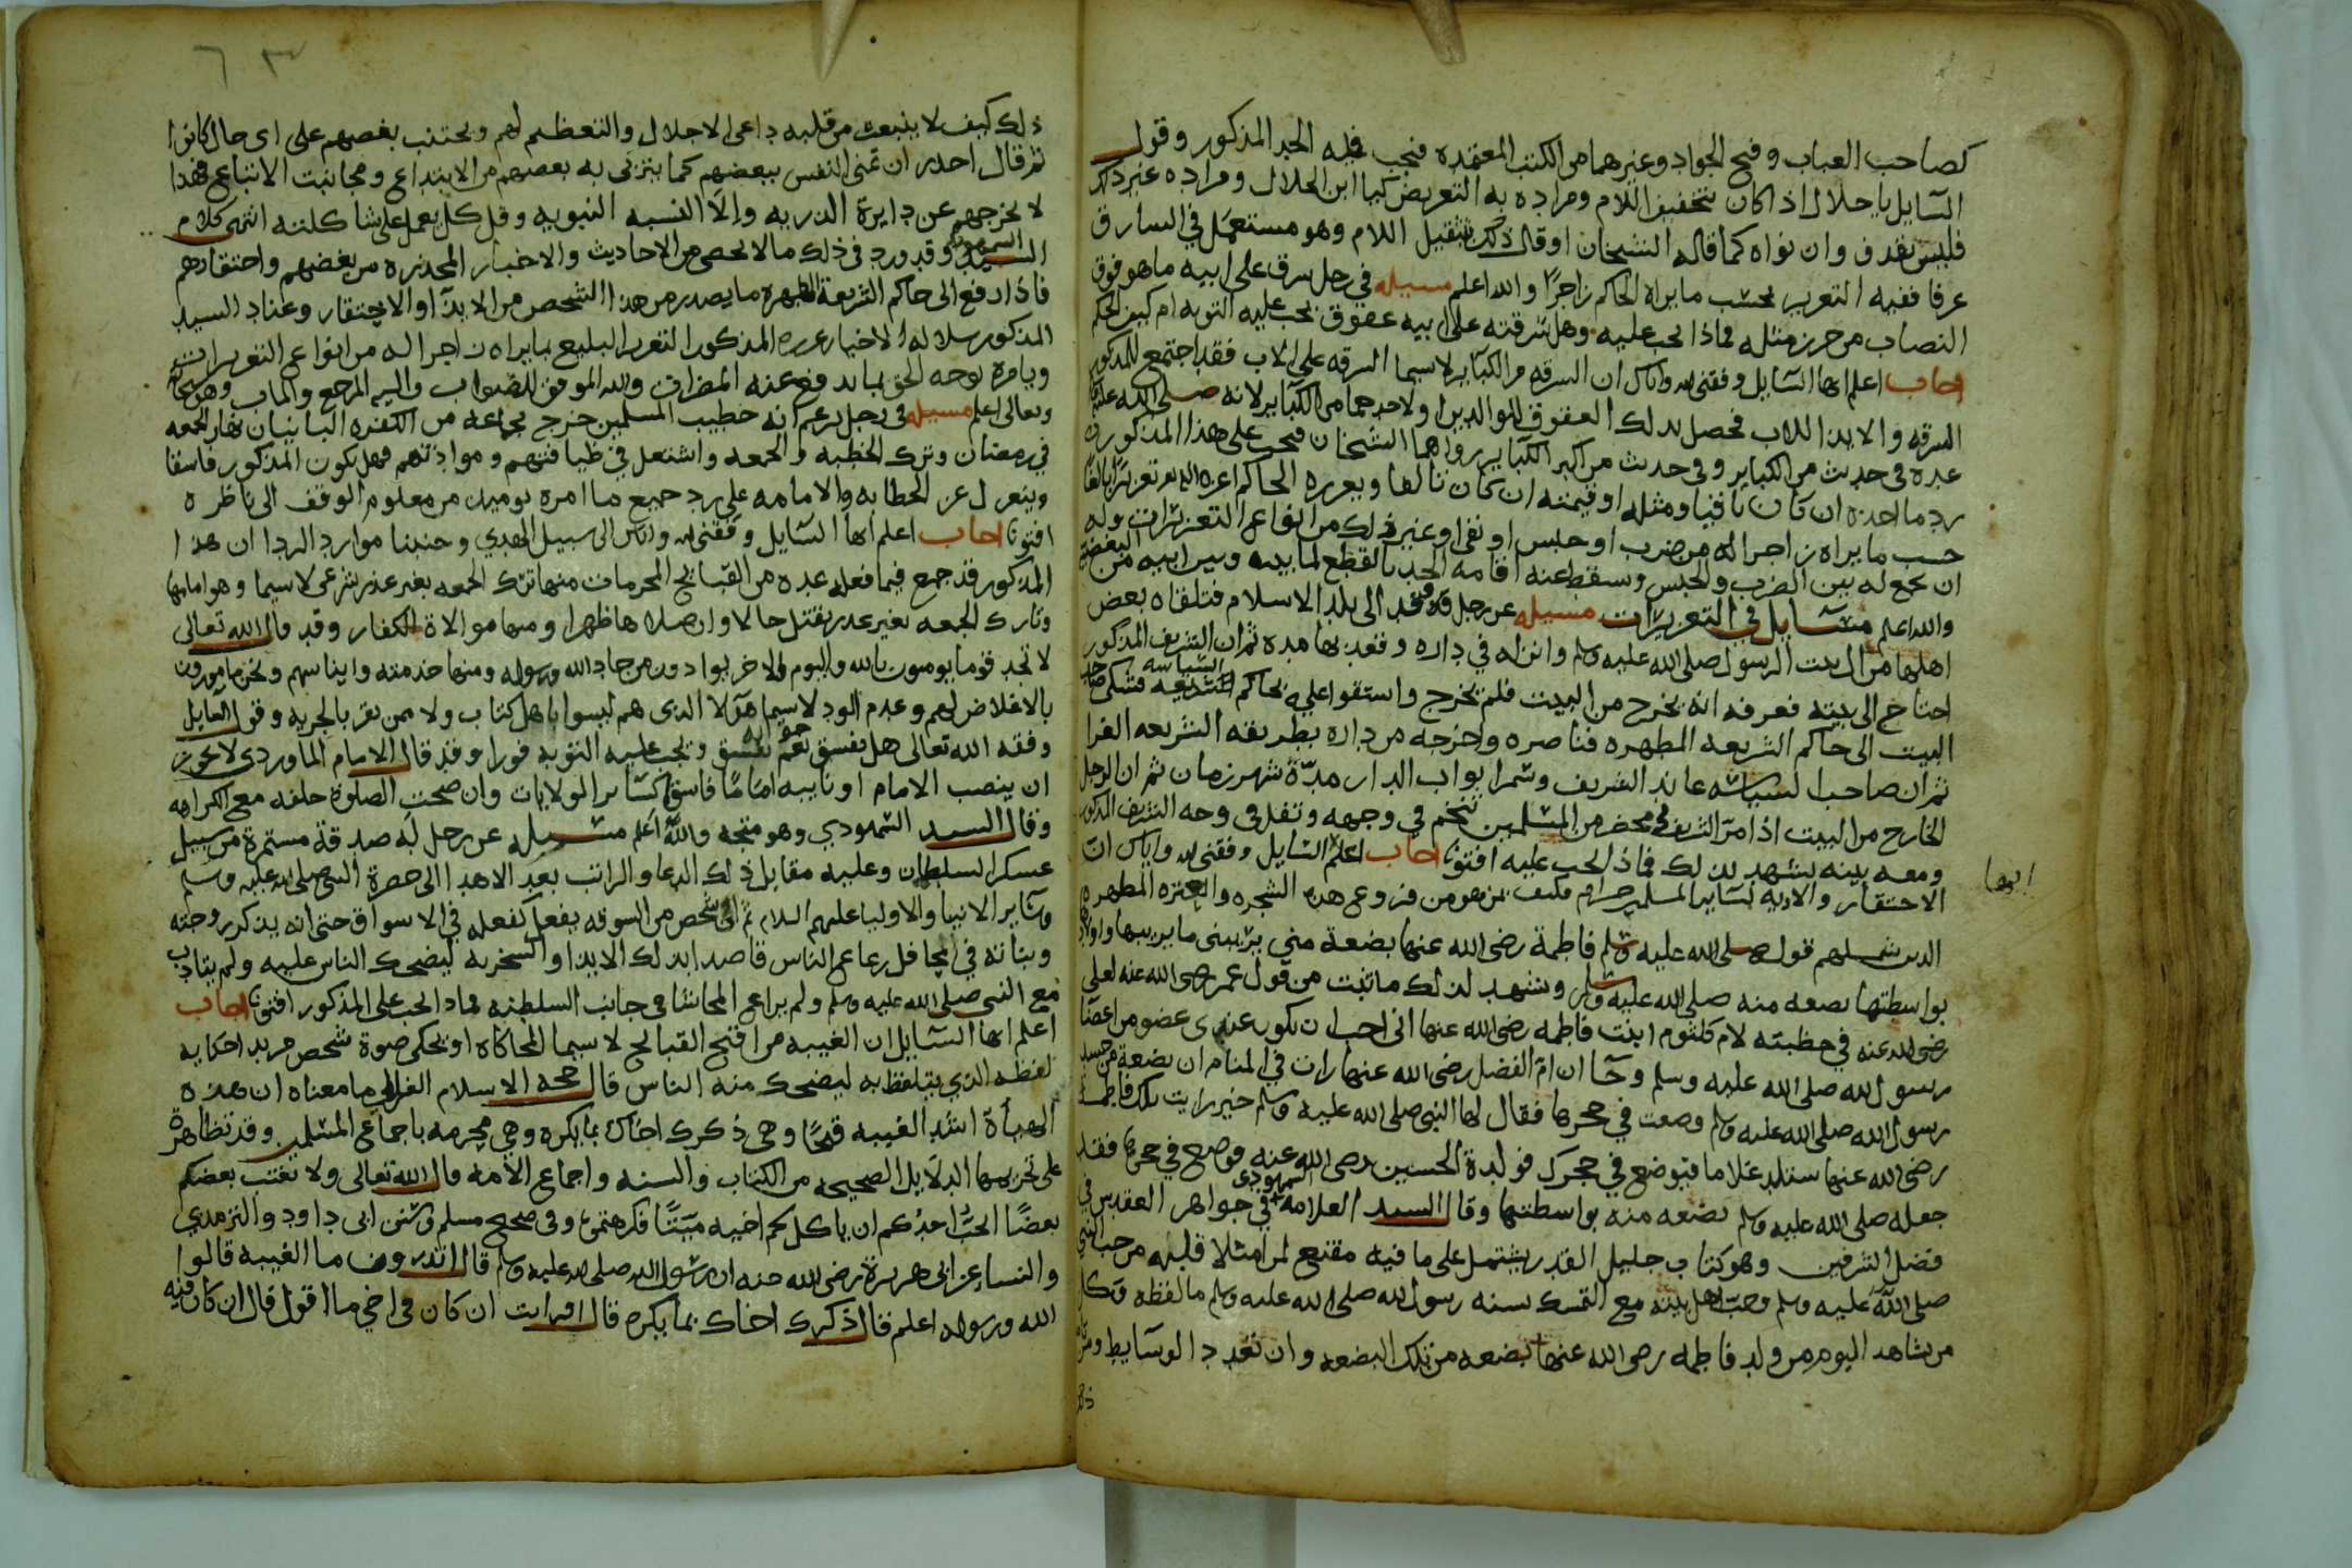 كصاحب العباب وفتح الجواد وغيرهما من الكتب المعتمده فيجب فيه الحد المذكور وقول
السايل يا حلال اذا كان بتخفيف اللام ومراده به التعريض كيا ابن الحلال ومراده غير ذلك
فليس بقذف وان نواه كما قاله الشيخان او قال ذلك بتثقيل اللام وهو مستعمل في السارق
عرفا ففيه التعزير بحسب ما يراه الحاكم زاجرًا والله اعلم مسيله في رجل سرق على ابيه ما هو فوق
النصاب من حرز مثله فماذا يجب عليه وهل سرقته على ابيه عقوق يجب عليه التوبه ام كيف الحكم
اجاب اعلم ايها السايل وفقني الله واياك ان السرقه من الكباير لا سيما السرقه على الاب فقد اجتمع للمذكور
السرقه والايذا للاب فحصل بذلك العقوق للوالدين او لاحدهما من الكباير لانه صلى الله عليه
عده في حديث من الكباير وفي حديث من اكبر الكباير رواهما الشيخان فيجب على هذا المذكور
رد ما اخذه ان كان باقيا ومثله او قيمته ان كان تالفا ويعزره الحاكم تعزيرًا بالغًا
حسب ما يراه زاجرا له من ضرب او حبس او نفي او غير ذلك من انواع التعزيرات وله
ان يجمع له بين الضرب والحبس وسقط عنه اقامة الحد بالقطع لما بينه وبين ابيه من البعضية
والله اعلم مسايل في التعزيرات مسيله عن رجل قدم الى بلد الاسلام فتلقاه بعض
اهلها من ال بيت الرسول صلى الله عليه وسلم وانزله في داره وقعد بها مدة ثم ان الشريف المذكور
احتاج الى بيته فعرفه انه يخرج من البيت فلم يخرج واستقوا عليه بحاكم السياسه فشكى صاحب
البيت الى حاكم الشريعه المطهره فناصره واخرجه من داره بطريقة الشريعه الغرا
ثم ان صاحب السياسه عاند الشريف وسمر ابواب الدار مدّة شهر زمان ثم ان الرجل
الخارج من البيت اذا مر الشريف في محضر من المسلمين تنخم في وجهه وتفل في وجه الشريف المذكور
ومعه بينه تشهد بذلك فماذا يجب عليه افتونا اجاب اعلم ايها السايل وفقني الله واياك ان
الاحتقار والاذيه لساير المسلمين حرام فكيف بمن هو من فروع هذه الشجره والعتره المطهره
الذين شملهم قوله صلى الله عليه وسلم فاطمة رضى الله عنها بضعة مني يريبني ما يريبها واولادها
بواسطتها بضعه منه صلى الله عليه وسلم وشهد لذلك ما ثبت من قول عمر رضى الله عنه لعلي
رضى الله عنه في خطبته لام كلثوم ابنت فاطمه رضى الله عنها اني احب ان يكون عندي عضو من اعضا
رسول الله صلى الله عليه وسلم وجا ان ام الفضل رضى الله عنها رات في المنام ان بضعة من جسد
رسول الله صلى الله عليه وسلم وضعت في حجرها فقال لها النبي صلى الله عليه وسلم خير رايت تلد فاطمة
رضى الله عنها ستلد غلاما فيوضع في حجرك فولدة الحسين رضى الله عنه فوضع في حجرها فقد
جعله صلى الله عليه وسلم بضعه منه بواسطتها وقال السيد العلامه السمهودى في جواهر العقدين في
فضل الشرفين وهو كتاب جليل القدر يشتمل على ما فيه مقنع لمن امتلا قلبه من حب النبي
صلى الله عليه وسلم وحب اهل بيته مع التمسك بسنه رسول الله صلى الله عليه وسلم ما لفظه وكل
من يشاهد اليوم من ولد فاطمه رضى الله عنها بضعه من تلك البضعه وان تعدد الوسايط ومن
ذلك كيف لا ينبعث من قلبه داعى الاجلال والتعظيم لهم ويجتنب بغضهم على اى حال كانوا
ثم قال احذر ان تمنى النفس ببغضهم كما يتزنى به بعضهم من الابتداع ومجانبت الاتباع فهذا
لا يخرجهم عن دايرة الذريه والا النسبه النبويه وقل كل يعمل على شاكلته انتهى كلام
السيد السمهودي وقد ورد في ذلك ما لا يحصى من الاحاديث والاخبار المحذره من بغضهم واحتقارهم
فاذا رفع الى حاكم الشريعة المطهره ما يصدر من هذا الشخص من الايذآ او الاحتقار وعناد السيد
المذكور عزره المذكور التعزير البليغ بما يراه زاجرا له من انواع التعزيرات
ويامره بوجه الحق بما يدفع عنه المضرات والله الموفق للصواب واليه المرجع والماب وهو سبحانه
وتعالى اعلم مسيله في رجل يزعم انه خطيب المسلمين خرج بجماعه من الكفره البانيان نهار الجمعه
في رمضان وترك الخطبه والجمعه واشتغل في ضيافتهم وموادتهم فهل يكون المذكور فاسقا
وينعزل عن الخطابه والامامه على رد جميع ما امره يوميذ من معلوم الوقف الى ناظره
افتونا اجاب اعلم ايها السايل وفقني الله واياك الى سبيل الهدي وجنبنا موارد الردا ان هذا
المذكور قد جمع فيما فعله عده من القبايح المحرمات منها ترك الجمعه بغير عذر شرعى لا سيما وهو امامها
وتارك الجمعه بغير عذر يقتل حالا وان صلاها ظهرا ومنها موالاة الكفار وقد قال الله تعالى
لا تجد قوما يومنون بالله واليوم الاخر يوادون من حاد الله ورسوله ومنها خدمته وايناسهم ونحن مامورون
بالاغلاض لهم وعدم الود لا سيما هولا الذى هم ليسوا باهل كتاب ولا ممن يقر بالجزيه وقول القايل
وفقه الله تعالى هل يفسق جوابه نعم يفسق ويجب عليه التوبه فورا وقد قال الامام الماوردي لا يجوز
ان ينصب الامام او نايبه امامًا فاسقا كساير الولايات وان صحت الصلوة خلفه مع الكراهه
وقال السيد السمهودي وهو متجه والله اعلم مسيله عن رجل له صدقة مستمرة من سبيل
عسكر السلطان وعليه مقابل ذلك الدعا والراتب بعد الاهدا الى حضرة النبي صلى الله عليه وسلم
وساير الانبيا والاوليا عليهم السلام ثم اتى شخص من السوقه يفعل كفعله في الاسواق حتى انه يذكر زوجته
وبناته في المحافل رعاع الناس قاصدا بذلك الايذا والسخريه ليضحك الناس عليه ولم يتادب
مع النبي صلى الله عليه وسلم ولم يراعى المحاشا في جانب السلطنه فماذا يجب على المذكور افتونا اجاب
اعلم ايها السايل ان الغيبه من اقبح القبايح لا سيما المحاكاه او يحكى صوة شخص مريد احكايه
لفظه الذي يتلفظ به ليضحك منه الناس قال حجه الاسلام الغزالي ما معناه ان هذه
الهيأة اشد الغيبه قبحًا وهي ذكرك اخاك بما يكره وهي محرمه باجماع المسلمين وقد تظاهرة
على تحريمها الدلايل الصحيحه من الكتاب والسنه واجماع الامه قال الله تعالى ولا يغتب بعضكم
بعضًا ايحب احدكم ان ياكل لحم اخيه ميتًا فكرهتموه وفي صحيح مسلم وسنن ابي داود والترمدي
والنساي عن ابي هريرة رضى الله عنه ان رسول الله صلى الله عليه وسلم قال اتدرون ما الغيبه قالوا
الله ورسوله اعلم قال ذكرك اخاك بما يكره قال افرات ان كان في اخي ما اقول قال ان كان فيه